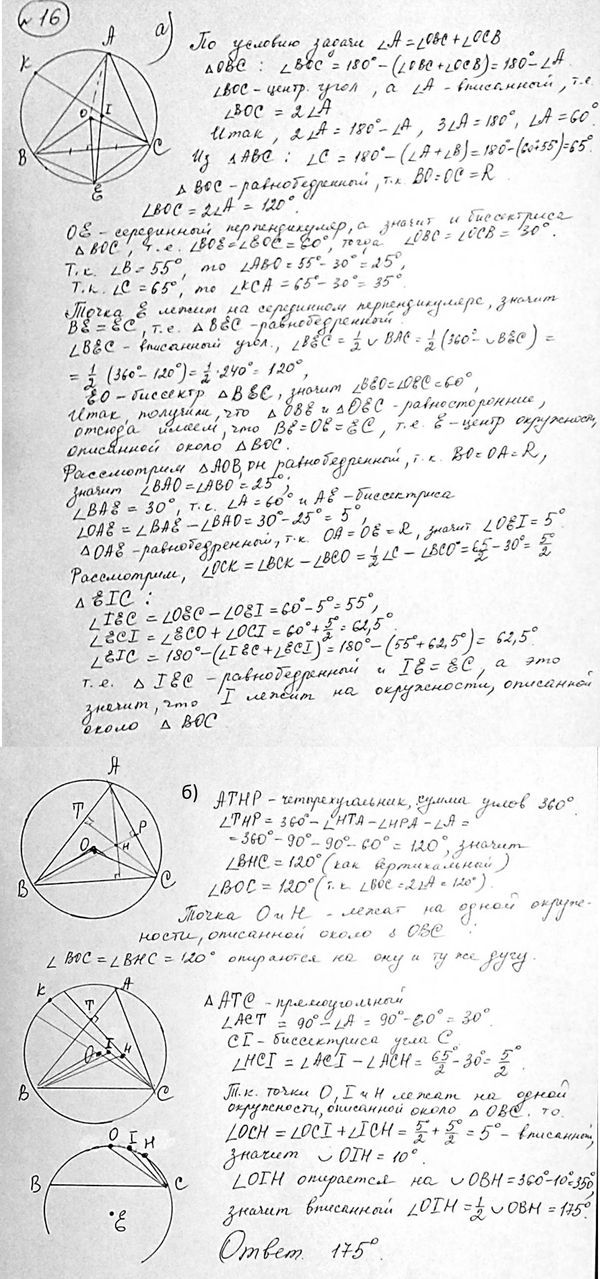 № 16
а) По условию задачи ∠A = ∠OBC + ∠OCB
△OBC : ∠BOC = 180° - (∠OBC + ∠OCB) = 180° - ∠A.
∠BOC - центр. угол, а ∠A - вписанный, т.е.
∠BOC = 2∠A
Итак, 2∠A = 180° - ∠A, 3∠A = 180°, ∠A = 60°
Из △ABC : ∠C = 180° - (∠A + ∠B) = 180° - (60+55°) = 65°
△BOC - равнобедренный, т.к. BO = OC = R
∠BOC = 2∠A = 120°.
OE - серединный перпендикуляр, а значит и биссектриса
△BOC, т.е. ∠BOE = ∠EOC = 60°, тогда ∠OBC = ∠OCB = 30°.
Т.к. ∠B = 55°, то ∠ABO = 55° - 30° = 25°,
Т.к. ∠C = 65°, то ∠KCA = 65° - 30° = 35°.
Точка E лежит на серединном перпендикуляре, значит
BE = EC, т.е. △BEC - равнобедренный.
∠BEC - вписанный угол, ∠BEC = 1/2 ∪ BAC = 1/2 (360° - ∪ BEC) =
= 1/2 (360° - 120°) = 1/2 · 240° = 120°,
EO - биссектр △BEC, значит ∠BEO = ∠OEC = 60°,
Итак, получили, что △OBE и △OEC - равносторонние,
отсюда имеем, что BE = OE = EC, т.е. E - центр окружности,
описанной около △BOC.
Рассмотрим △AOB, он равнобедренный, т.к. BO = OA = R,
значит ∠BAO = ∠ABO = 25°;
∠BAE = 30°, т.к. ∠A = 60° и AE - биссектриса
∠OAE = ∠BAE - ∠BAO = 30° - 25° = 5°,
△OAE - равнобедренный, т.к. OA = OE = R, значит ∠OEI = 5°.
Рассмотрим, ∠OCK = ∠BCK - ∠BCO = 1/2 ∠C - ∠BCO = 65/2 - 30° = 5°/2
△EIC :
∠IEC = ∠OEC - ∠OEI = 60° - 5° = 55°,
∠ECI = ∠ECO + ∠OCI = 60° + 5°/2 = 62,5°
∠EIC = 180° - (∠IEC + ∠ECI) = 180° - (55° + 62,5°) = 62,5°
т.е. △IEC - равнобедренный и IE = EC, а это
значит, что I лежит на окружности, описанной
около △BOC
A
K
O
I
B
C
E
б) ATHP - четырехугольник, сумма углов 360°
∠THP = 360° - ∠HTA - ∠HPA - ∠A =
= 360° - 90° - 90° - 60° = 120°, значит
∠BHC = 120° (как вертикальный)
∠BOC = 120° (т.к. ∠BOC = 2∠A = 120°).
Точка O и H - лежат на одной окруж-
ности, описанной около △OBC :
∠BOC = ∠BHC = 120° опираются на одну и ту же дугу.
A
T
P
O
H
B
C
△ATC - прямоугольный
∠ACT = 90° - ∠A = 90° - 60° = 30°.
CI - биссектриса угла C
∠HCI = ∠ACI - ∠ACH = 65°/2 - 30° = 5°/2.
Т.к. точки O, I и H лежат на одной
окружности, описанной около △OBC, то
∠OCH = ∠OCI + ∠ICH = 5°/2 + 5°/2 = 5° - вписанный,
значит ∪ OIH = 10°.
∠OIH опирается на ∪ OBH = 360° - 10° = 350°,
значит вписанный ∠OIH = 1/2 ∪ OBH = 175°.
Ответ. 175°.
K
A
T
O
I
H
B
C
O
I
H
B
C
E